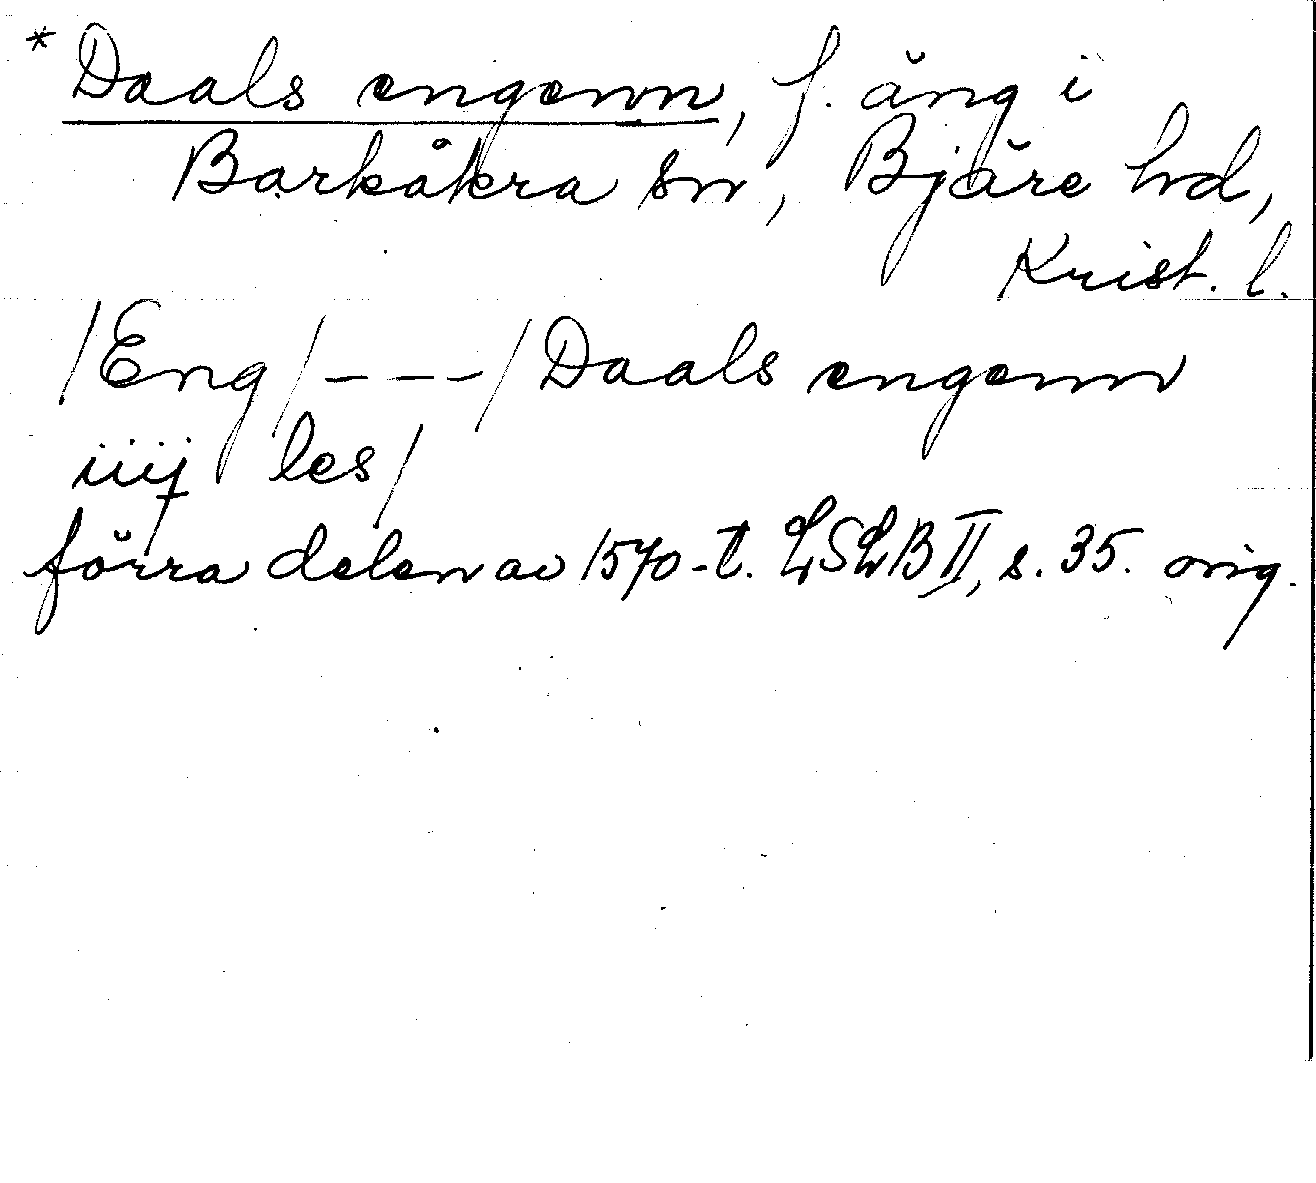 * Daals engenn, f. äng i
Barkåkra sn, Bjäre hd,
Krist. l.
/Eng/ - - - / Daals engenn
iiij les/
förra delen av 1570-t. LSLB II, s. 35. orig.